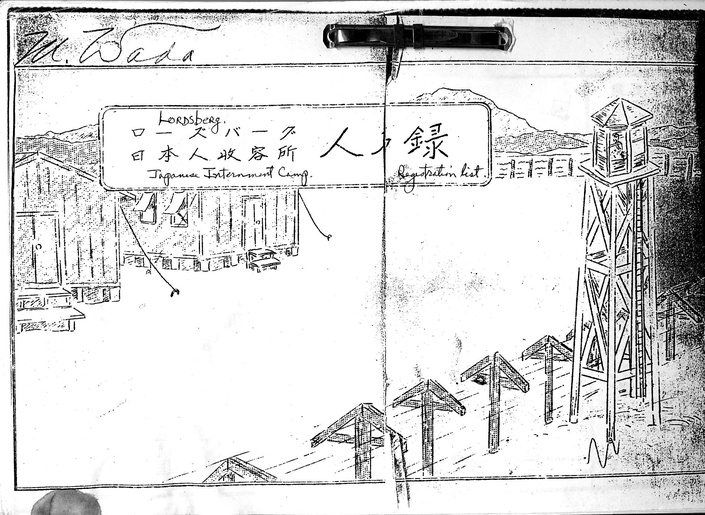 M. Wada
Lordsberg.
ローズバーグ
日本人收容所 人名録
Japanese Internment Camp.
Registration List.